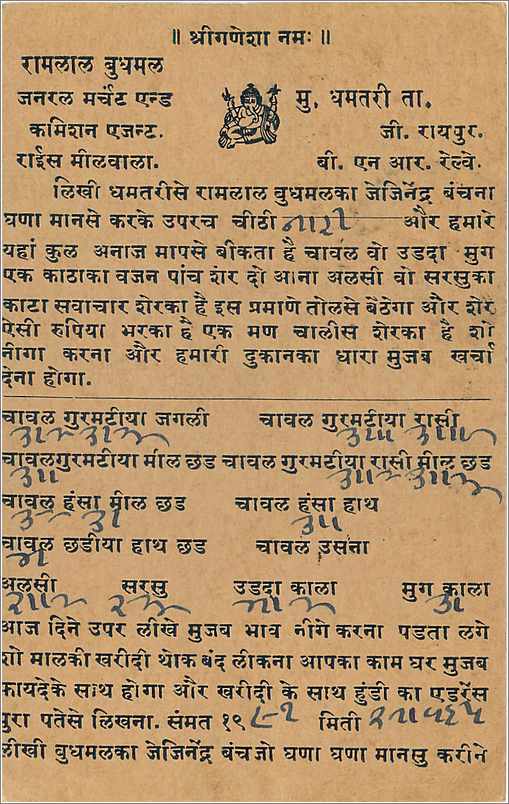 ॥ श्रीगणेशा नमः ॥
रामलाल बुधमल
जनरल मर्चंट एन्ड
मु. धमतरी ता.
कमिशन एजन्ट.
जी. रायपुर.
राईस मीलवाला.
बी. एन आर. रेल्वे.
लिखी धमतरीसे रामलाल बुधमलका जेजिनेंद्र बंचना
घणा मानसे करके उपरच चीठी और हमारे
यहां कुल अनाज मापसे बीकता है चावल वो उडदा मुग
एक काठाका वजन पांच शेर दो आना अलसी वो सरसुका
काटा सवाचार शेरका है इस प्रमाणे तोलसे बैठेगा और शेर
ऐसी रुपिया भरका है एक मण चालीस शेरका है शो
नीगा करना और हमारी दुकानका धारा मुजब खर्चा
देना होगा.
चावल गुरमटीया जगली चावल गुरमटीया रासी
चावलगुरमटीया मील छड चावल गुरमटीया रासी मील छड
चावल हंसा मील छड चावल हंसा हाथ
चावल छडीया हाथ छड चावल उसना
अलसी सरसु उडदा काला मुग काला
आज दिने उपर लीखे मुजब भाव नीगे करना पडता लगे
शो मालकी खरीदी थोक बंद लीकना आपका काम घर मुजब
फायदेके साथ होगा और खरीदी के साथ हुंडी का एडरेंस
पुरा पतेसे लिखना. संमत १९ मिती
लीखी बुधमलका जेजिनेंद्र बंचजो घणा घणा मानसु करीने